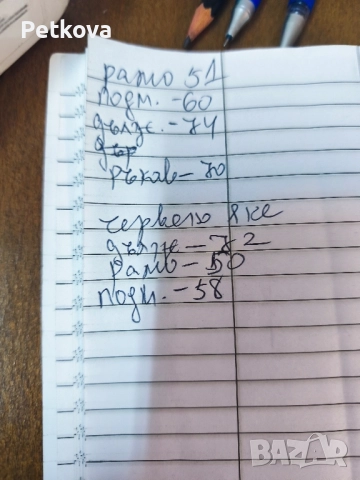 Petkova
рамо 51
подм. - 60
дълж. - 74
дър
ръкав - 70
червено яке
дълж - 72
рамо - 50
подм. - 58
BAZAR